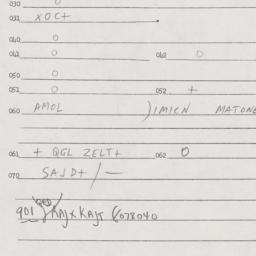 030 0
031 XOC+
040 0
041 0 042 0
050 0
051 0 052 +
060 AMOL )IMICN MATONE
061 + QGL ZELT+ 062 0
070 SAJD+/—
901 KAJXKAJT (078040